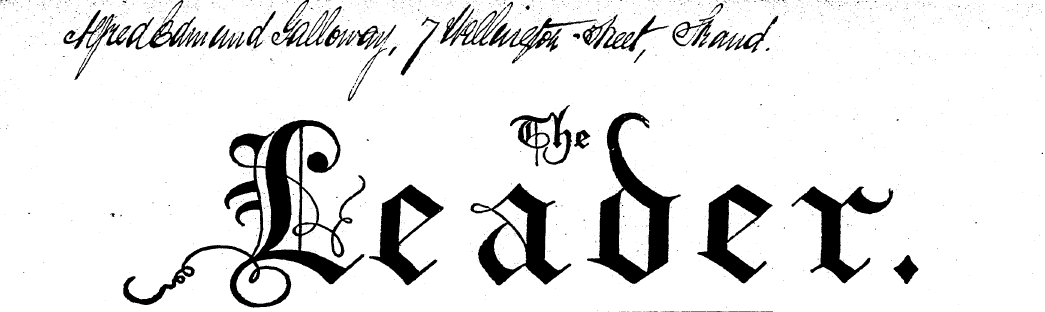 Alfred Edmund Galloway, 7 Wellington-street, Strand.
The
Leader.